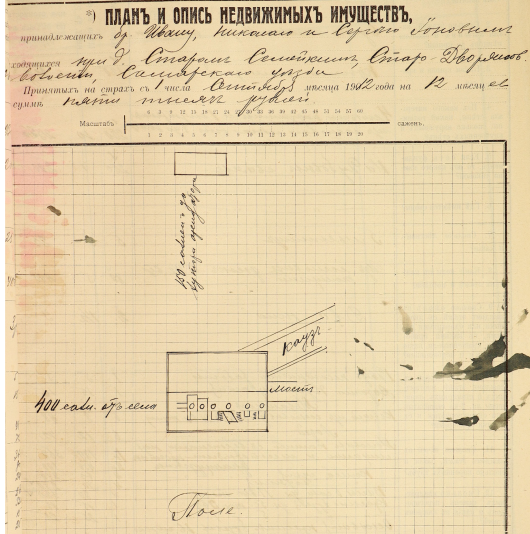 *) ПЛАНЪ И ОПИСЬ НЕДВИЖИМЫХЪ ИМУЩЕСТВЪ,
принадлежащихъ бр. Ивану, Николаю и Сергею
ходящихся при Старомъ Семейкинѣ, Старо-Дворянов.
волости, Самарскаго уѣзда
Принятыхъ на страхъ съ числа Октября мѣсяца 1912 года на 12 мѣсяцев
суммѣ пяти тысячъ рублей.
6 9 12 15 18 21 24 27 30 33 36 39 42 45 48 51 54 57 60
Масштабъ саженъ.
1 2 3 4 5 6 7 8 9 10 11 12 13 14 15 16 17 18 19 20
150 саженъ до
каузъ
мостъ
400 саж. отъ села
Поле.